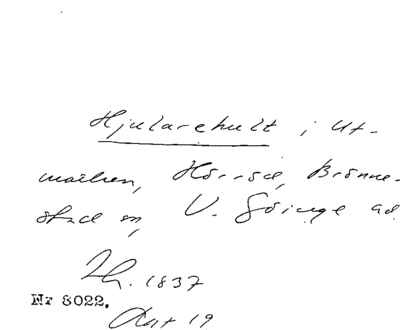 Hjularehult i Ut-
marken, Hörröd, Brönne-
stad sn, V. Göinge hd.
Lh. 1837
Nr 8022.
Akt 19